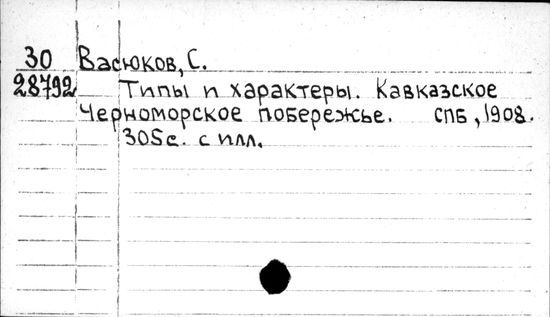 30 Васюков, С.
28792 Типы и характеры. Кавказское
Черноморское побережье. СПБ, 1908.
305с. с илл.